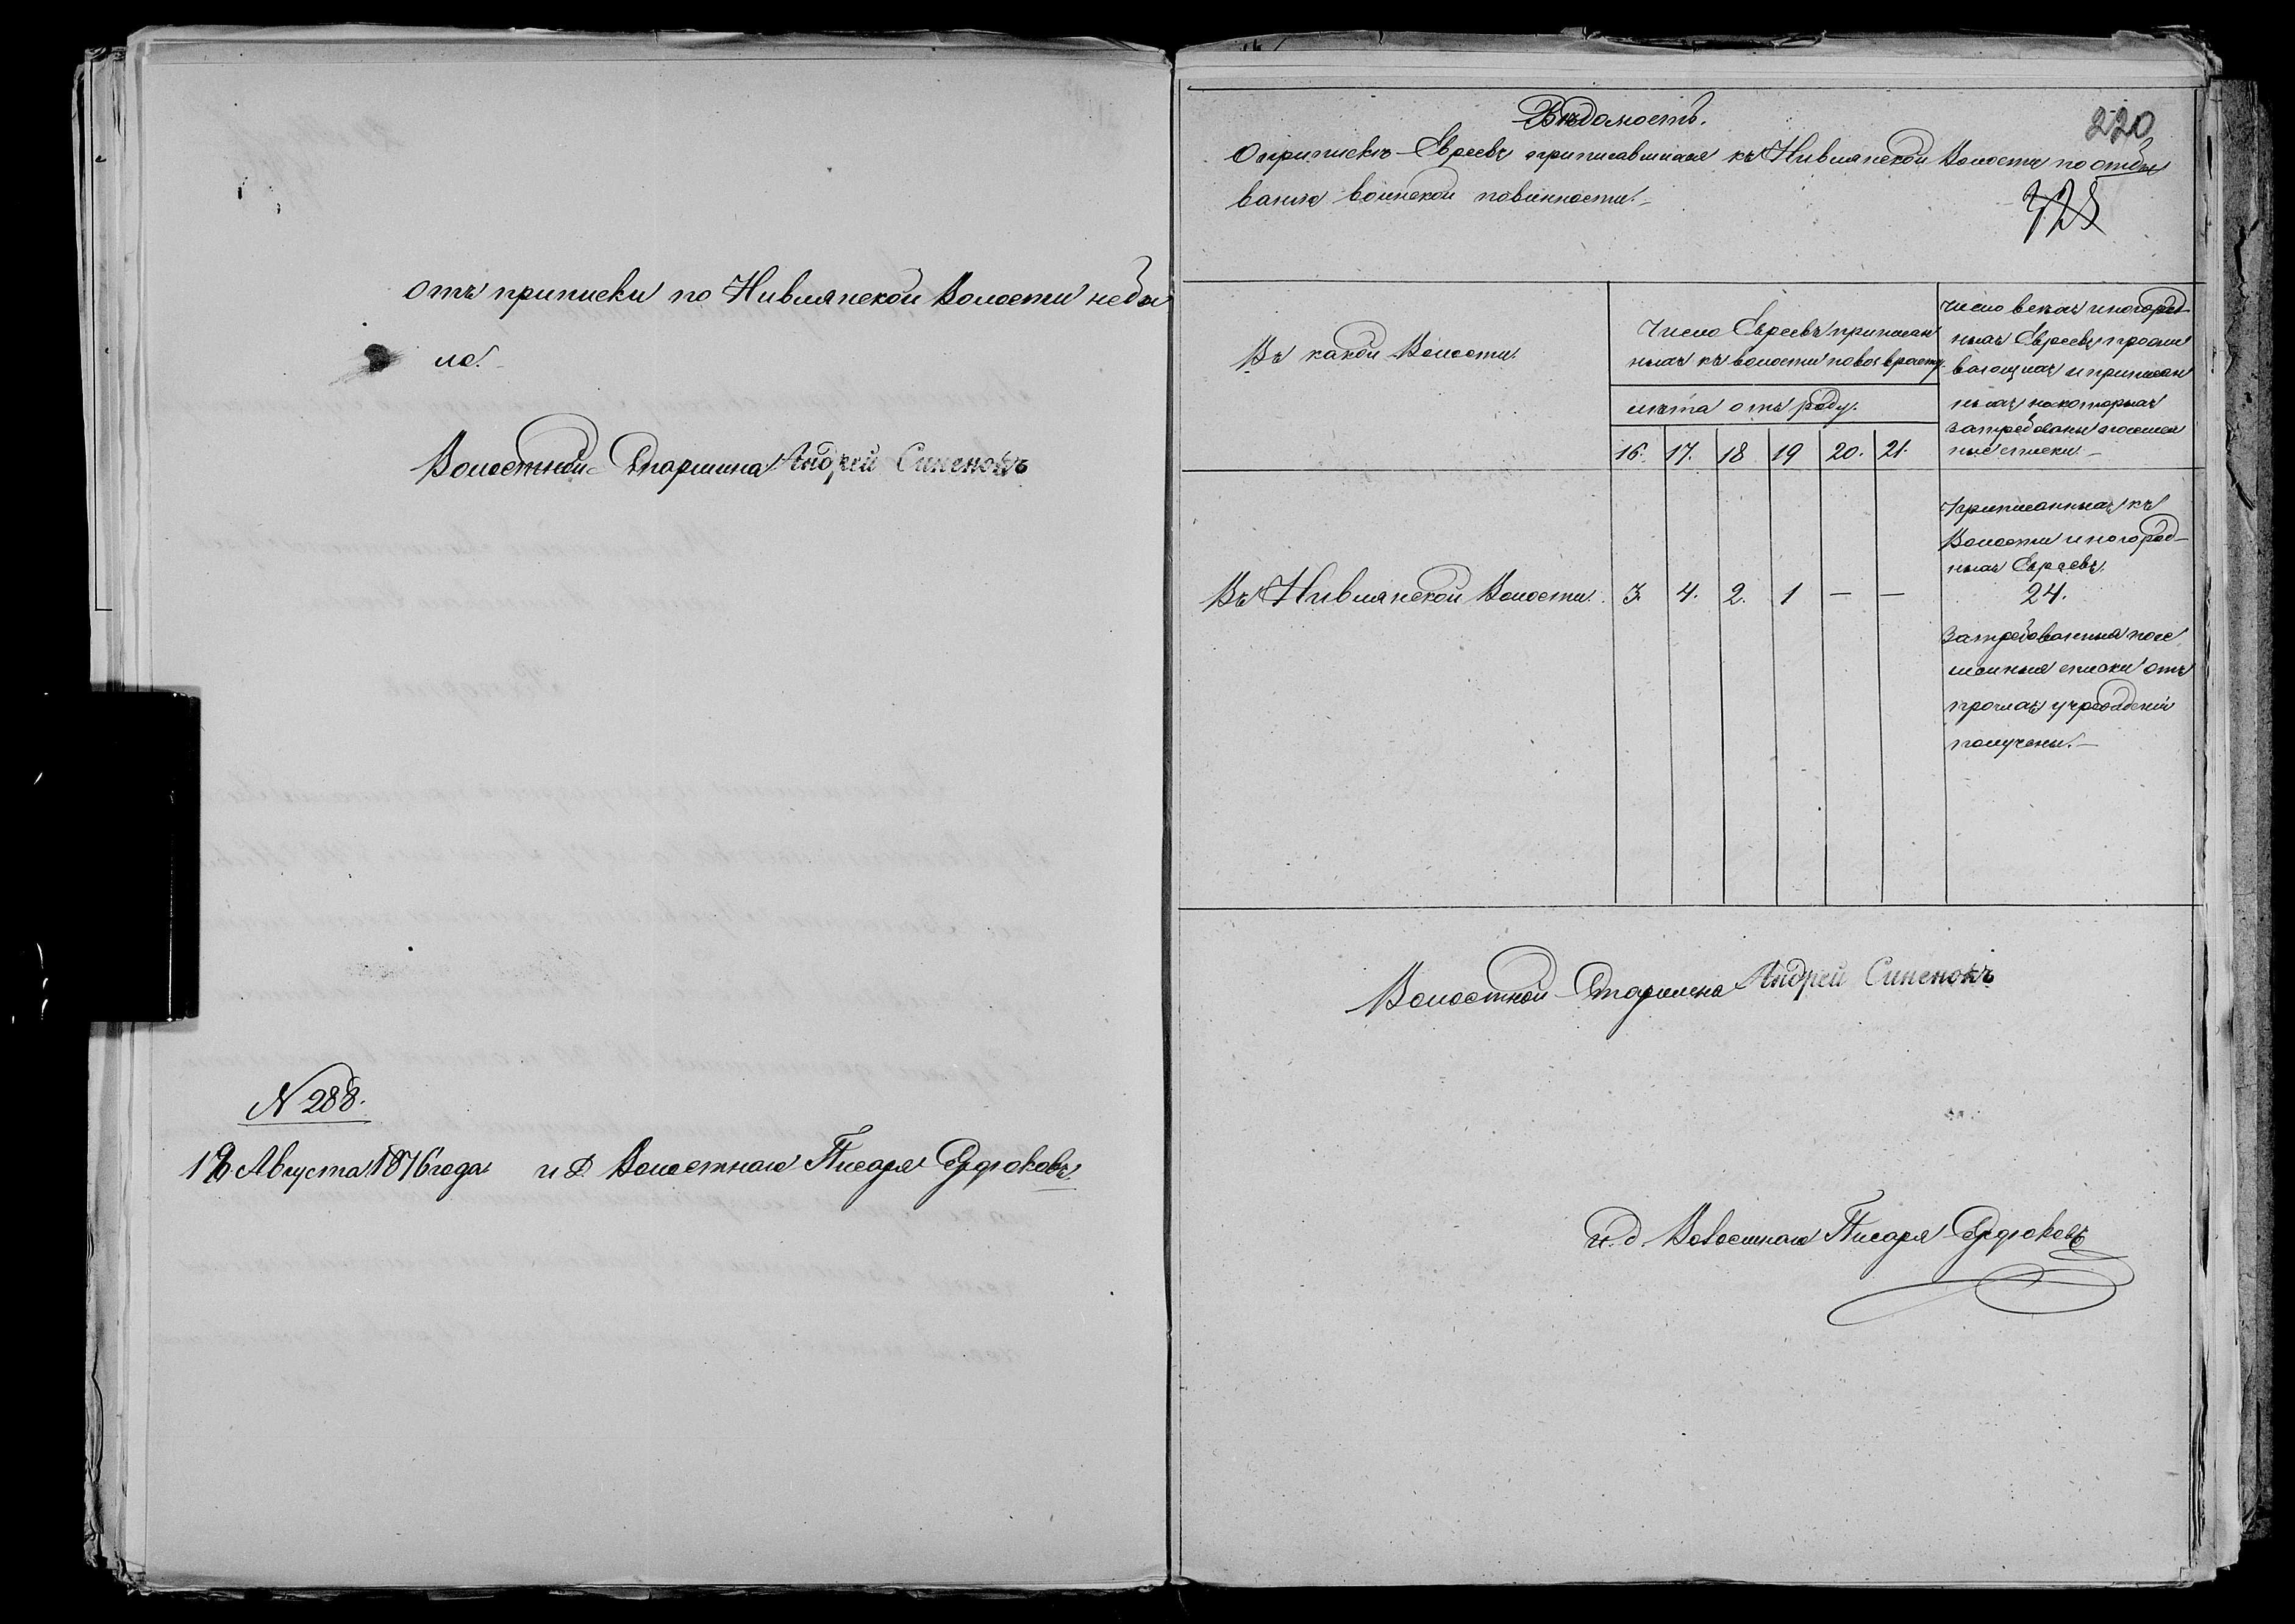 отъ приписки по Нивлянской Волости небы
ло.
Волостной Старшина Андрей Синенокъ
N 288.
19 Августа 1876 года и Д. Волостнаго Писаря Сердюковъ.
220
Вѣдомость.
О припискѣ Евреевъ приписавшихся къ Нивлянской Волости по отбы
ванію воинской повинности.
328
Въ какой Волости.
Число Евреевъ приписан
ныхъ къ волости по возврасту.
лѣта отъ роду.
16. 17. 18 19 20. 21.
Число всѣхъ иногород
ныхъ Евреевъ прожи
вающихъ и приписан
ныхъ на которыхъ
затребованы посемей
ные списки.
Въ Нивлянской Волости. 3. 4. 2. 1 — —
Приписанныхъ къ
Волости иногород-
ныхъ Евреевъ.
24.
Затребованныя посе
мейныя списки отъ
прочихъ учрежденій
получены.
Волостной Старшина Андрей Синенокъ
и. д. Волостнаго Писаря Сердюковъ